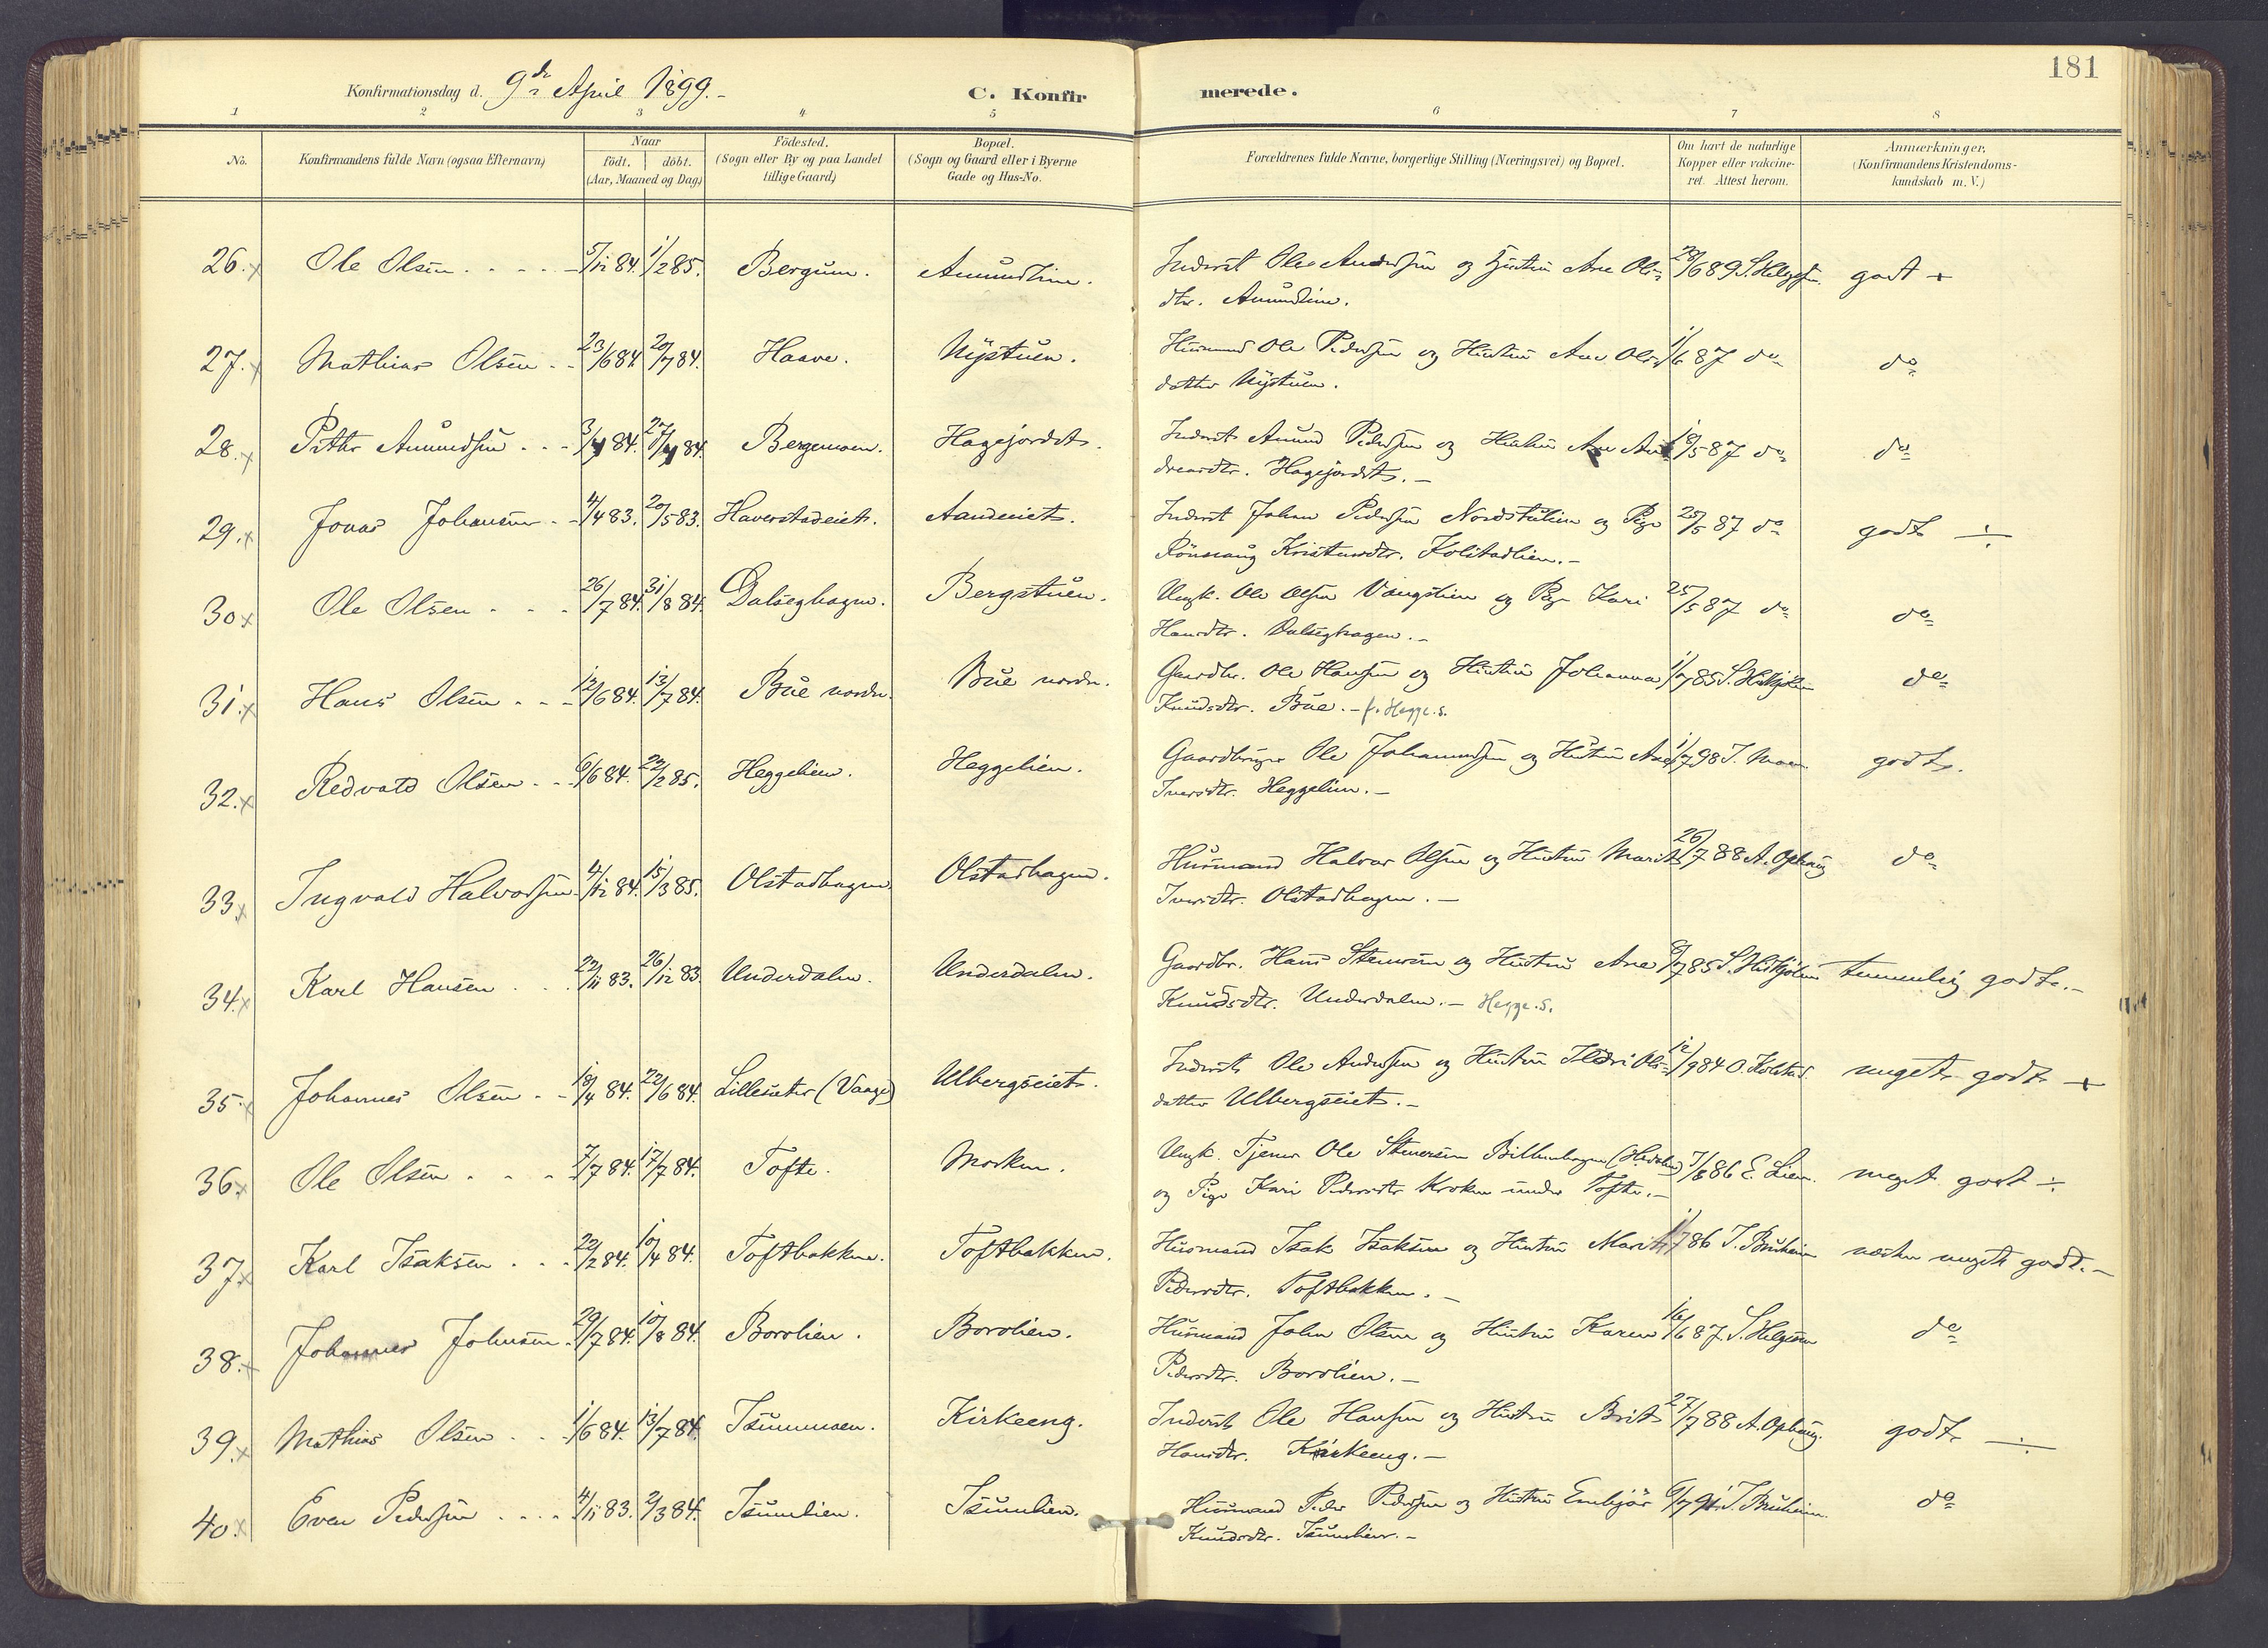 181
Konfirmationsdag d. 9de April 1899.-
C. Konfirmerede.
1 2 3 4 5 6 7 8
No.
Konfirmandens fulde Navn (ogsaa Efternavn)
Naar
födt. döbt.
(Aar, Maaned og Dag)
Födested.
(Sogn eller By og paa Landet
tillige Gaard)
Bopæl.
(Sogn og Gaard eller i Byerne
Gade og Hus-No.
Forældrenes fulde Navne, borgerlige Stilling (Næringsvei) og Bopæl.
Om havt de naturlige
Kopper eller vakcine-
ret. Attest herom.
Anmærkninger,
(Konfirmandens Kristendoms-
kundskab m. V.)
26. x Ole Olsen . . . . 5/12 84. 1/2 85. Bergum. Amundlien. Inderst Ole Andersen og Hustru Ane Ols= 28/6 89 S. Helgesen. godt +
dtr. Amundlien.
27. x Mathias Olsen . . 23/6 84. 20/7 84. Haave. Nystuen. Husmand Ole Pedersen og Hustru Ane Ols= 1/6 87 do do
datter Nystuen.
28. x Petter Amundsen . . . 3/4 84. 27/4 84. Bergemoen. Hagejordet. Inderst Amund Pedersen og Hustru Ane An= 18/5 87 do do
dreasdtr. Hagejordet. -
29. x Jonas Johansen . 4/4 83. 20/5 83. Haverstadeiet. Aandeiet. Inderst Johan Pedersen Nordstulien og Pige 25/5 87 do godt ÷
Rönnaug Kristensdtr. Kolstadlien. -
30 x Ole Olsen . . . 26/7 84. 31/8 84. Dalseghagen. Bergstuen. Ungk. Ole Olsen Vangslien og Pige Kari 25/5 87 do do
Hansdtr. Dalseghagen. -
31. x Hans Olsen . . . 12/6 84. 13/7 84. Bue nordre. Bue nordre. Gaardbr. Ole Hansen og Hustru Johanna 1/7 85 do
Knudsdtr. Bue. - f. Hegge. s.
32. x Redvald Olsen . . 6/6 84. 22/2 85. Heggelien. Heggelien. Gaardbruger Ole Johannessen og Hustru Ane 1/7 98 T. Moen. godt.
Iversdtr. Heggelien. -
33. x Ingvald Halvorsen 4/12 84. 15/3 85. Olstadhagen. Olstadhagen. Husmand Halvor Olsen og Hustru Marit 26/7 88 A. Ophaug do
Iversdtr. Olstadhagen. -
34. x Karl Hansen . . . 22/11 83. 26/12 83. Underdalen. Underdalen. Gaardbr. Hans Stensrsen og Hustru Ane 8/7 85 temmelig godt. -
Knudsdtr. Underdalen. - Hegge. s.
35. x Johannes Olsen . . 18/4 84. 22/6 84. Lillesæter (Vaage) Ulbergseiet. Inderst Ole Andersen og Hustru Ildri Ols= 12/9 84 O. Kolstad. meget godt +
datter Ulbergseiet. -
36. x Ole Olsen . . . 7/7 84. 17/7 84. Tofte. Morken. Ungk. Tjener Ole Stenersen (Hedalen) 7/8 86 E. Lien. meget godt ÷
og Pige Kari Pedersdtr Kroken under Tofte. -
37. x Karl Isaksen . . . 22/2 84. 10/4 84. Toftbakken. Toftbakken. Husmand Isak Isaksen og Hustru Marit 1/7 86 T. Bruheim næsten meget godt. -
Pedersdtr. Toftbakken. -
38. x Johannes Johnsen . 29/7 84. 10/8 84. Borolien. Borolien. Husmand John Olsen og Hustru Karen 16/6 87. S. Helgesen do
Pedersdtr. Borolien. -
39. x Mathias Olsen . . . 1/6 84. 13/7 84. Isummoen. Kirkeeng. Inderst Ole Hansen og Hustru Brit 27/7 88 A. Ophaug. godt ÷
Hansdtr. Kirkeeng. -
40. x Even Pedersen . . . . 4/11 83. 2/3 84. Isumlien. Isumlien. Husmand Peder Pedersen og Hustru Embjör 6/7 91 T. Bruheim. do
Knudsdtr. Isumlien. -